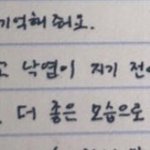 기억해줘요.
고 낙엽이 지기 전에
더 좋은 모습으로